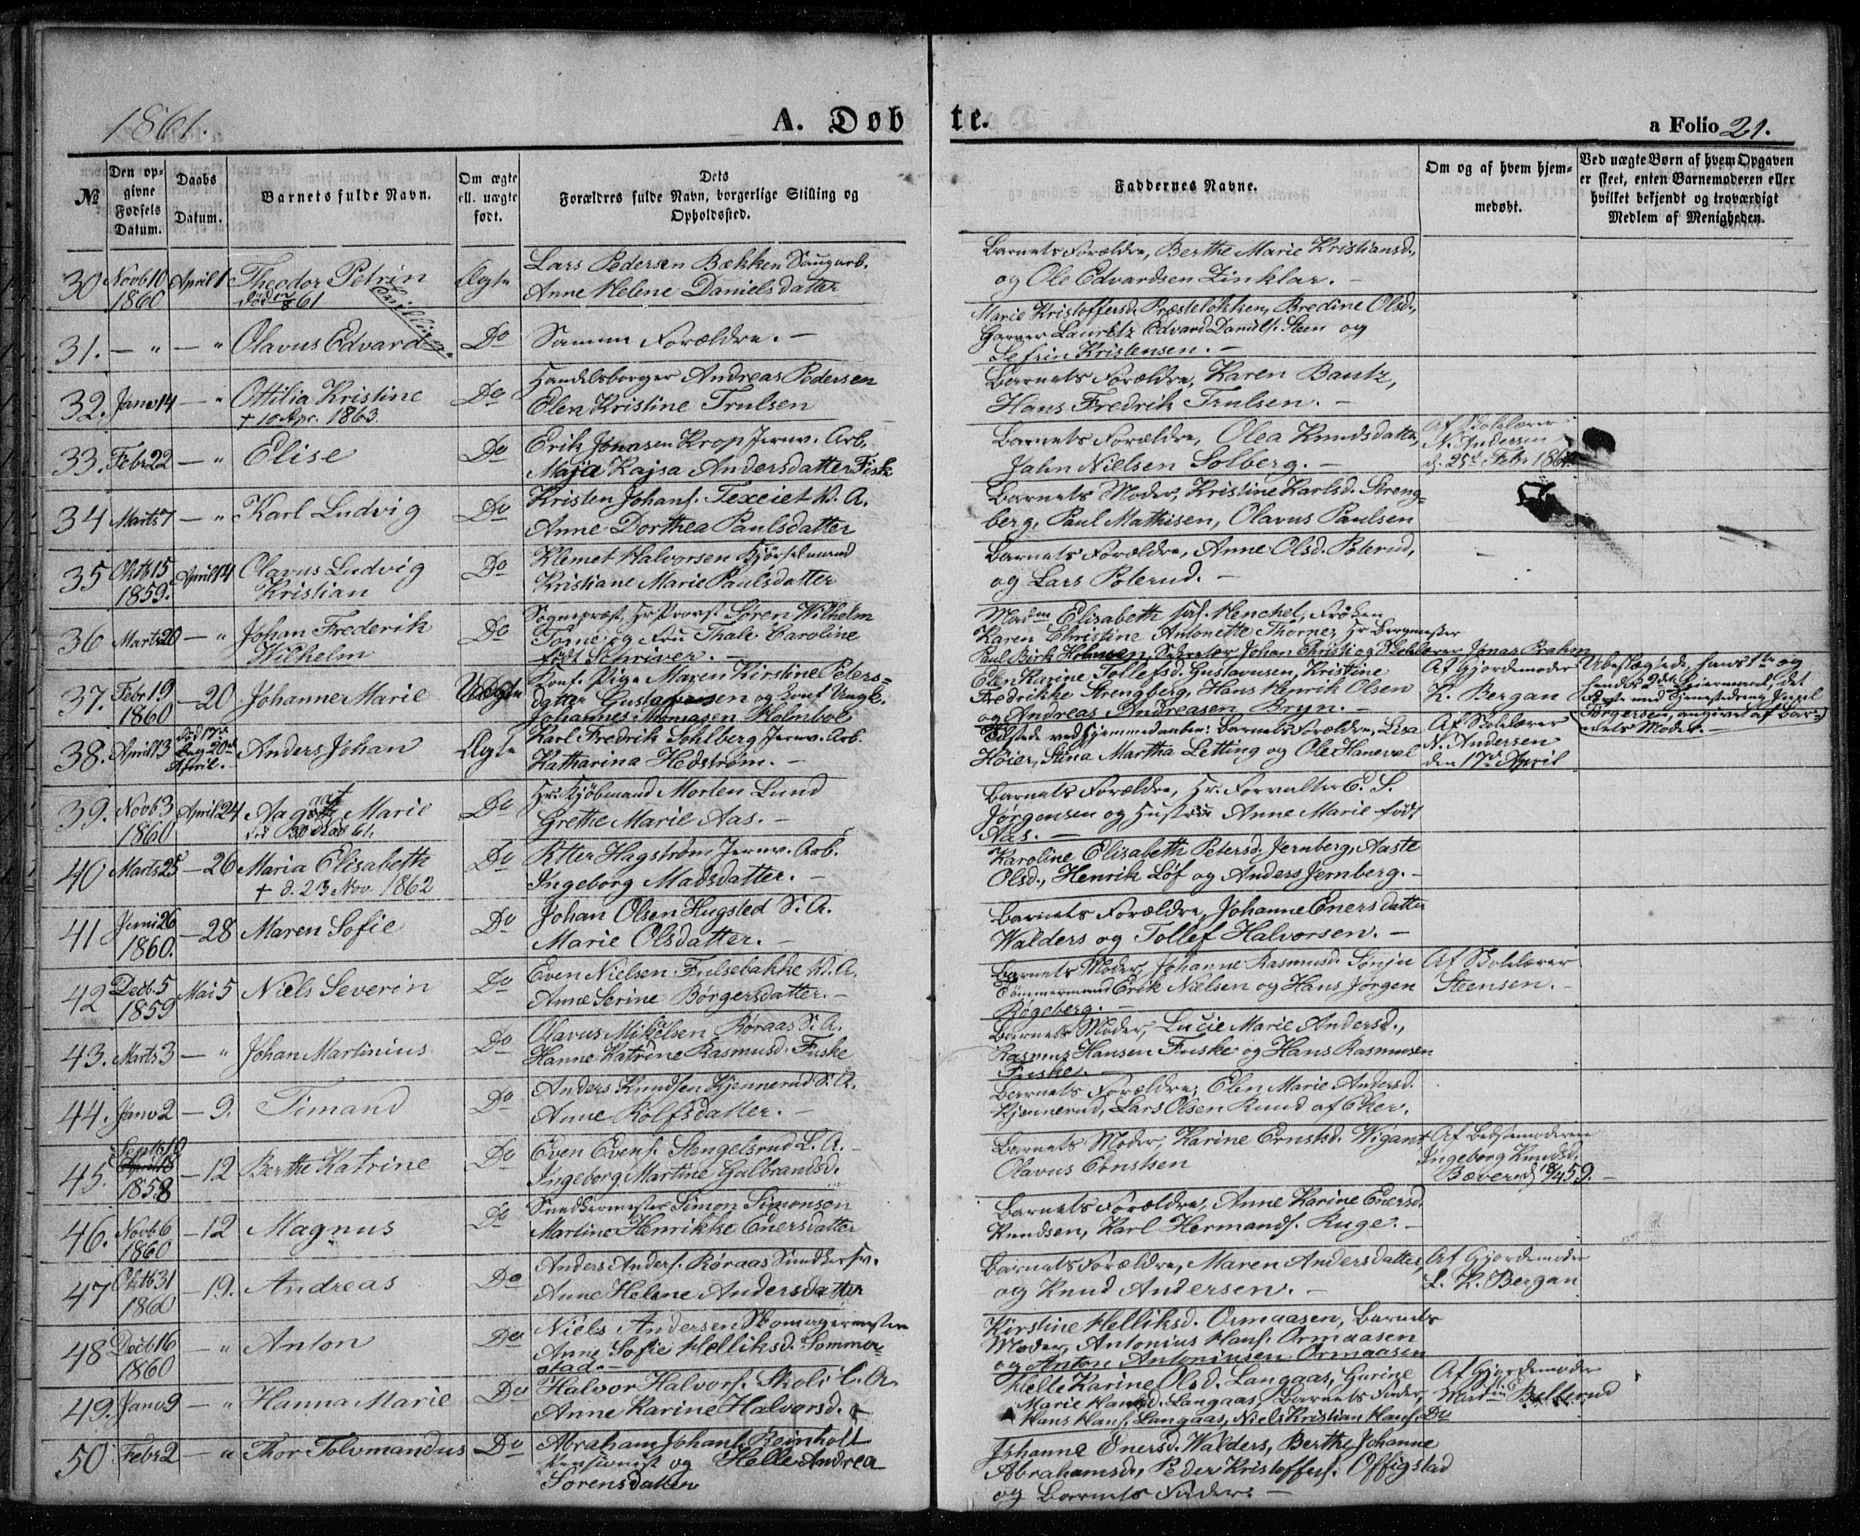 1861.
A. Døbte.
a Folio 21.
№
Den opgivne Fødsels Datum.
Daabs Datum.
Barnets fulde Navn.
Om ægte ell. uægte født.
Dets Forældres fulde Navn, borgerlige Stilling og Opholdssted.
Faddernes Navne.
Om og af hvem hjemmedøbt.
Ved uægte Børn af hvem Opgaven er skeet, enten Barnemoderen eller hvilket bekjendt og troværdigt Medlem af Menigheden.
30 Novb 10 1860 April 1 Theodor Petrin Ægte
Lars Pedersen Bækken
Anne Helene Danielsdatter
Barnets Forældre, Berthe Marie Kristiansd.,
og Ole Edvardsen Zinklar. —
31. — „ — „ Olavus Edvard Do
Samme Forældre. —
Marie Kristoffersd. Præsteløkken, Bredine Olsd.,
Garver Lauritz Edvard Daniels. Steen og
Sefrin Kristensen. —
32. Janv 14 — „ Ottilia Kristine Do
† 10 Apr. 1863.
Handelsborger Andreas Pedersen
Elen Kristine Trulsen
Barnets Forældre, Karen Bautz,
Hans Fredrik Trulsen. —
33. Febr 22 — „ Elise Do
Erik Jonasen Krop Jernv. Arb.
Maja Kajsa Andersdatter Fisk
Barnets Forældre, Olea Knudsdatter,
Jahn Nielsen Solberg. —
Af Skolelærer
N. Andersen
d. 25d Febr. 1861.
34 Marts 7 — „ Karl Ludvig Do
Kristen Johans. Texeiet K. A.
Anne Dorthea Paulsdatter
Barnets Moder, Kristine Karlsd. Streng-
berg, Paul Mathisen, Olavus Paulsen
35 Oktb 15 1859. April 14 Olavus Ludvig Kristian Do
Klemet Halvorsen Kjørselmand
Kristiane Marie Paulsdatter
Barnets Forældre, Anne Olsd. Poterud,
og Lars Poterud. —
36 Marts 20 — „ Johan Frederik Wilhelm Do
Sognepræst, Hr Provst Søren Wilhelm
Thale Caroline
født Schriver. —
Elisabeth Henchel, Frøken
Karen Christine Antonette Thorner, Hr Bergmester
Jonas Brahm
37. Febr. 19 1860 — 20 Johanne Marie Uægte
Konf. Pige Maren Kirstine Peters-
datter Gustafvesen og Konf. Ungk.
Johannes Thomasen Holmboe
Elen Karine Tollefsd. Gustavusen, Kristine
Fredrikke Strengberg, Hans Henrik Olsen
og Andreas Andreasen Bryn. —
Af Gjordemoder
K. Bergan
38. April 13 April. Anders Johan Ægte
Karl Fredrik Sohlberg Jernv. Arb.
Katharina Hedstrøm. —
Tilstede ved Hjemmedaaben: Barnets Forældre, Lisa
Høier, Stina Martha Letting og Ole Haneval
Af Skolelærer
N. Andersen
den 17d April
39. Novb 3 1860 April 24 Marie Do
Hr. Kjøbmand Morten Lund
Grethe Marie Aas. —
Barnets Forældre, Hr. Forvalter E. S.
Jørgensen og Hustru Anne Marie født
Aas. —
40 Marts 25 — 26 Maria Elisabeth Do
† d. 23 Nov. 1862
Hagstrøm Jernv. Arb.
Ingeborg Madsdatter. —
Karoline Elisabeth Petersd. Jernberg, Aaste
Olsd., Henrik Løf og Anders Jernberg. —
41 Juni 26 1860. — 28 Maren Sofie Do
Johan Olsen Hugsted S. A.
Marie Olsdatter. —
Barnets Forældre, Johanne Enersdatter
Walders og Tollef Halvorsen. —
42 Decb. 5 1859 Mai 5 Niels Severin Do
Even Nielsen Fulsebakke K. A.
Anne Serine Børgersdatter. —
Barnets Moder, Johanne Rasmusd. Sønju
Tømmermand Erik Nielsen og Hans Jørgen
Bøgeberg.
Af Skolelærer
Steensen. —
43. Marts 3 — „ Johan Martinius Do
Olavus Mikelsen Røraas S. A.
Hanne Katrine Rasmusd. Fuske
Barnets Moder, Lucie Marie Andersd.,
Rasmus Hansen Fuske og Hans Rasmusen
Fuske. —
44. Janv 2 — 9. Timand Do
Anders Knudsen Kjennerud S. A.
Anne Rolfsdatter. —
Barnets Forældre, Elen Marie Andersd.
Kjennerud, Lars Olsen Ruud af Eker.
45. Septb 10 1858 — 12 Berthe Katrine Do
Even Evens. Stengelsrud L. A.
Ingeborg Martine Gulbrandsd.
Barnets Moder, Karine Ernstsd. Wigant
Olavus Ernstsen
Af Bedstemoderen
Ingeborg Knudsd.
46. Novb 6 1860 — 12 Magnus Do
Snedkermester Simon Simonsen
Martine Henrikke Enersdatter
Barnets Forældre, Anne Karine Enersd.
Knudsen, Karl Hermands. Ruge. —
47 Oktb 31 1860 — 19. Andreas Do
Anders Anders. Røraas Snedkersv.
Anne Helene Andersdatter
Barnets Forældre, Maren Andersdatter,
og Knud Andersen. —
Af Gjordemoder
L. K. Bergan
48 Decb 16 1860 — „ Anton Do
Niels Andersen Skomagermester
Anne Sofie Helliksd. Sommer
stad. —
Kirstine Helliksd. Ormaasen, Barnets
Moder, Antonius Hans. Ormaasen
og Anton Antoniusen Ormaasen
49. Janv 9 — „ Hanna Marie Do
Halvor Halvors. Skoli L. A.
Anne Karine Halvorsd.
Helle Karine Olsd. Langaas, Gurine
Marie Hansd. Langaas, Barnets Fader,
Hans Hans. Langaas, Niels Kristian Hans. Do
Af Gjordemoder
50. Febr 2 — „ Thor Tolvmandus Do
Abraham Johans. Reinholt
Pensionist og Helle Andrea
Sørensdatter
Johanne Enersd. Walders, Berthe Johanne
Abrahamsd., Peder Kristoffers. Offigstad
og Barnets Fader. —